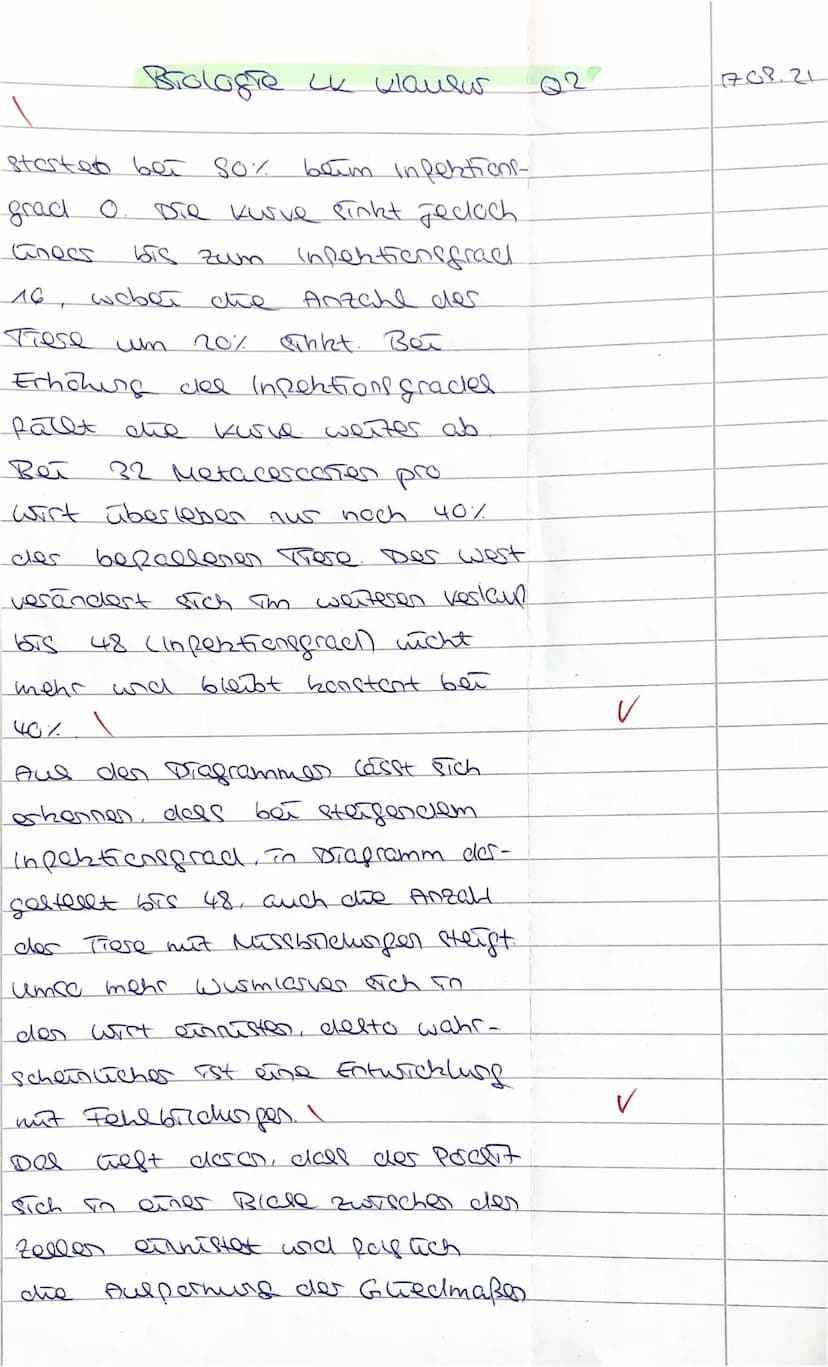 Biologie LK Klausur Q2 17.08.21
startet bei 90% beim Infektions-
grad 0. Die Kurve sinkt jedoch
linear bis zum Infektionsgrad
16, wobei die Anzahl der
Tiere um 20% sinkt. Bei
Erhöhung des Infektionsgrades
fällt die Kurve weiter ab.
Bei 32 Metacercarien pro
Wirt überleben nur noch 40%
der befallenen Tiere. Der Wert
verändert sich im weiteren Verlauf
bis 48 (Infektionsgrad) nicht
mehr und bleibt konstant bei
40%.
Aus den Diagrammen lässt sich
erkennen, dass bei steigendem
Infektionsgrad, in Diagramm dar-
gestellt bis 48, auch die Anzahl
der Tiere mit Missbildungen steigt.
Umso mehr Wurmlarven sich in
den Wirt einnisten, desto wahr-
scheinlicher ist eine Entwicklung
mit Fehlbildungen.
Das liegt daran, dass der Parasit
sich in einer Blase zwischen den
Zellen einnistet und folglich
die Ausformung der Gliedmaßen